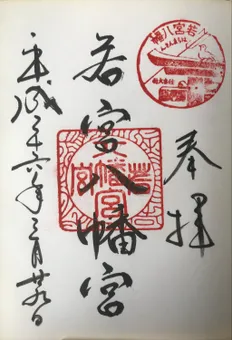 奉拝
若宮八幡宮
平成二十六年三月廿九日
若宮八幡
若宮八幡宮